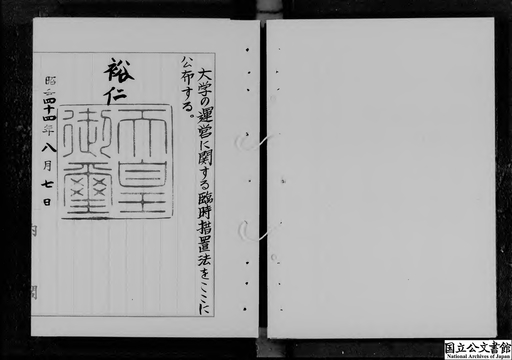 大学の運営に関する臨時措置法をここに
公布する。
裕仁
天皇
御璽
昭和四十四年八月七日
内閣
国立公文書館
National Archives of Japan